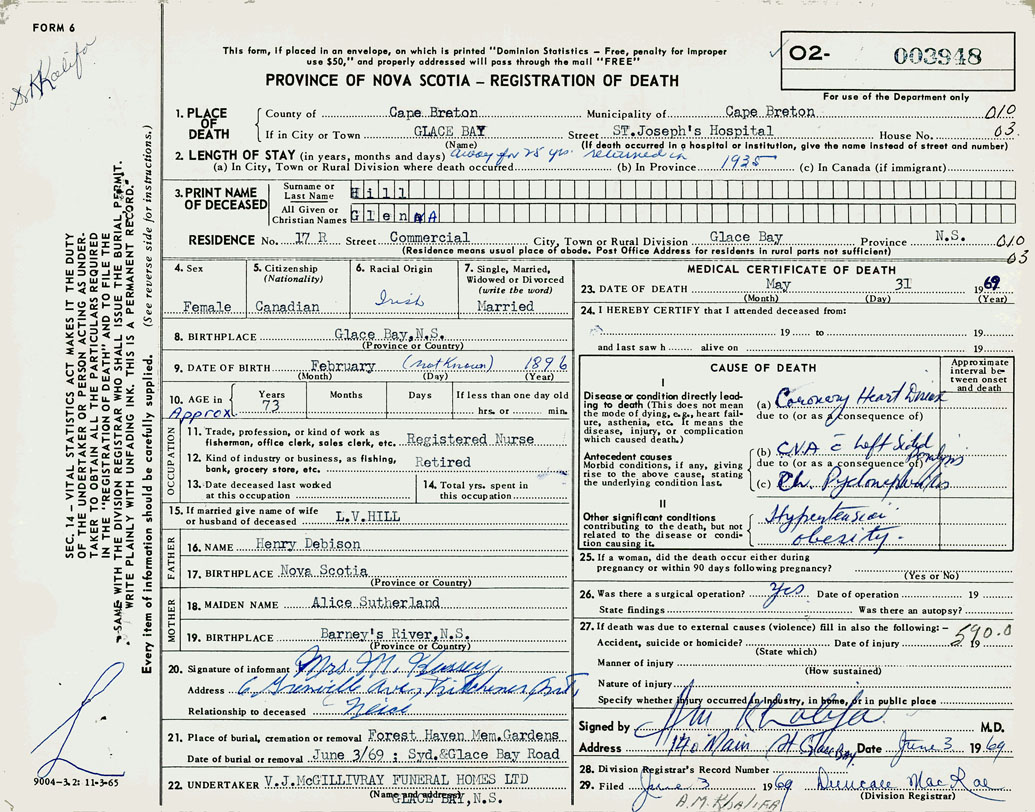 FORM 6
Dr Kalifa
This form, if placed in an envelope, on which is printed "Dominion Statistics – Free, penalty for improper
use $50," and properly addressed will pass through the mail "FREE"
PROVINCE OF NOVA SCOTIA – REGISTRATION OF DEATH
O2- 003948
For use of the Department only
1. PLACE OF DEATH
County of Cape Breton Municipality of Cape Breton 010
If in City or Town GLACE BAY Street ST.Joseph's Hospital House No. 03
(Name) (If death occurred in a hospital or institution, give the name instead of street and number)
2. LENGTH OF STAY (in years, months and days) away for 25 yrs. returned in
(a) In City, Town or Rural Division where death occurred (b) In Province 1935 (c) In Canada (if immigrant)
3. PRINT NAME OF DECEASED
Surname or Last Name Hill
All Given or Christian Names GlennA
RESIDENCE No. 17 R Street Commercial City, Town or Rural Division Glace Bay Province N.S. 010
(Residence means usual place of abode. Post Office Address for residents in rural parts not sufficient) 03
4. Sex Female
5. Citizenship (Nationality) Canadian
6. Racial Origin Irish
7. Single, Married, Widowed or Divorced (write the word) Married
8. BIRTHPLACE Glace Bay,N.S.
(Province or Country)
9. DATE OF BIRTH February (not Known) 1896
(Month) (Day) (Year)
10. AGE in Years 73 Months Days If less than one day old hrs. or min.
Approx
OCCUPATION
11. Trade, profession or kind of work as
fisherman, office clerk, sales clerk, etc. Registered Nurse
12. Kind of industry or business, as fishing,
bank, grocery store, etc. Retired
13. Date deceased last worked
at this occupation
14. Total yrs. spent in
this occupation
15. If married give name of wife
or husband of deceased L.V.HILL
FATHER
16. NAME Henry Debison
17. BIRTHPLACE Nova Scotia
(Province or Country)
MOTHER
18. MAIDEN NAME Alice Sutherland
19. BIRTHPLACE Barney's River,N.S.
(Province or Country)
20. Signature of informant Mrs M.
Address 6 Grenville Ave, Kitchener Ont,
Relationship to deceased Neice
21. Place of burial, cremation or removal Forest Haven Mem.Gardens
Date of burial or removal June 3/69 ; Syd.&Glace Bay Road
22. UNDERTAKER V.J.McGILLIVRAY FUNERAL HOMES LTD
(Name and address)
GLACE BAY,N.S.
MEDICAL CERTIFICATE OF DEATH
23. DATE OF DEATH May 31 1969
(Month) (Day) (Year)
24. I HEREBY CERTIFY that I attended deceased from:
19 to 19
and last saw h alive on 19
CAUSE OF DEATH
Approximate interval between onset and death
I
Disease or condition directly leading to death (This does not mean the mode of dying, e.g., heart failure, asthenia, etc. It means the disease, injury, or complication which caused death.)
(a) Coronary Heart Disease
due to (or as a consequence of)
Antecedent causes
Morbid conditions, if any, giving rise to the above cause, stating the underlying condition last.
(b) C.V.A c̄ Left Sided Paralysis
due to (or as a consequence of)
(c) Ch. Pyelonephritis
II
Other significant conditions contributing to the death, but not related to the disease or condition causing it.
Hypertension
obesity.
25. If a woman, did the death occur either during
pregnancy or within 90 days following pregnancy?
(Yes or No)
26. Was there a surgical operation? Yes Date of operation 19
State findings Was there an autopsy?
27. If death was due to external causes (violence) fill in also the following: – 590.0
Accident, suicide or homicide? Date of injury 19
(State which)
Manner of injury
(How sustained)
Nature of injury
Specify whether injury occurred in industry, in home, or in public place
Signed by AM Khalifa M.D.
Address 140 Main St Glace Bay Date June 3 1969
28. Division Registrar's Record Number
29. Filed June 3 1969 Duncan MacRae
(Division Registrar)
A.M. KHALIFA
SEC. 14 – VITAL STATISTICS ACT MAKES IT THE DUTY
OF THE UNDERTAKER OR PERSON ACTING AS UNDER-
TAKER TO OBTAIN ALL THE PARTICULARS REQUIRED
IN THE "REGISTRATION OF DEATH" AND TO FILE THE
SAME WITH THE DIVISION REGISTRAR WHO SHALL ISSUE THE BURIAL PERMIT.
WRITE PLAINLY WITH UNFADING INK. THIS IS A PERMANENT RECORD.
Every item of information should be carefully supplied. (See reverse side for instructions.)
9004-3.2: 11-3-65